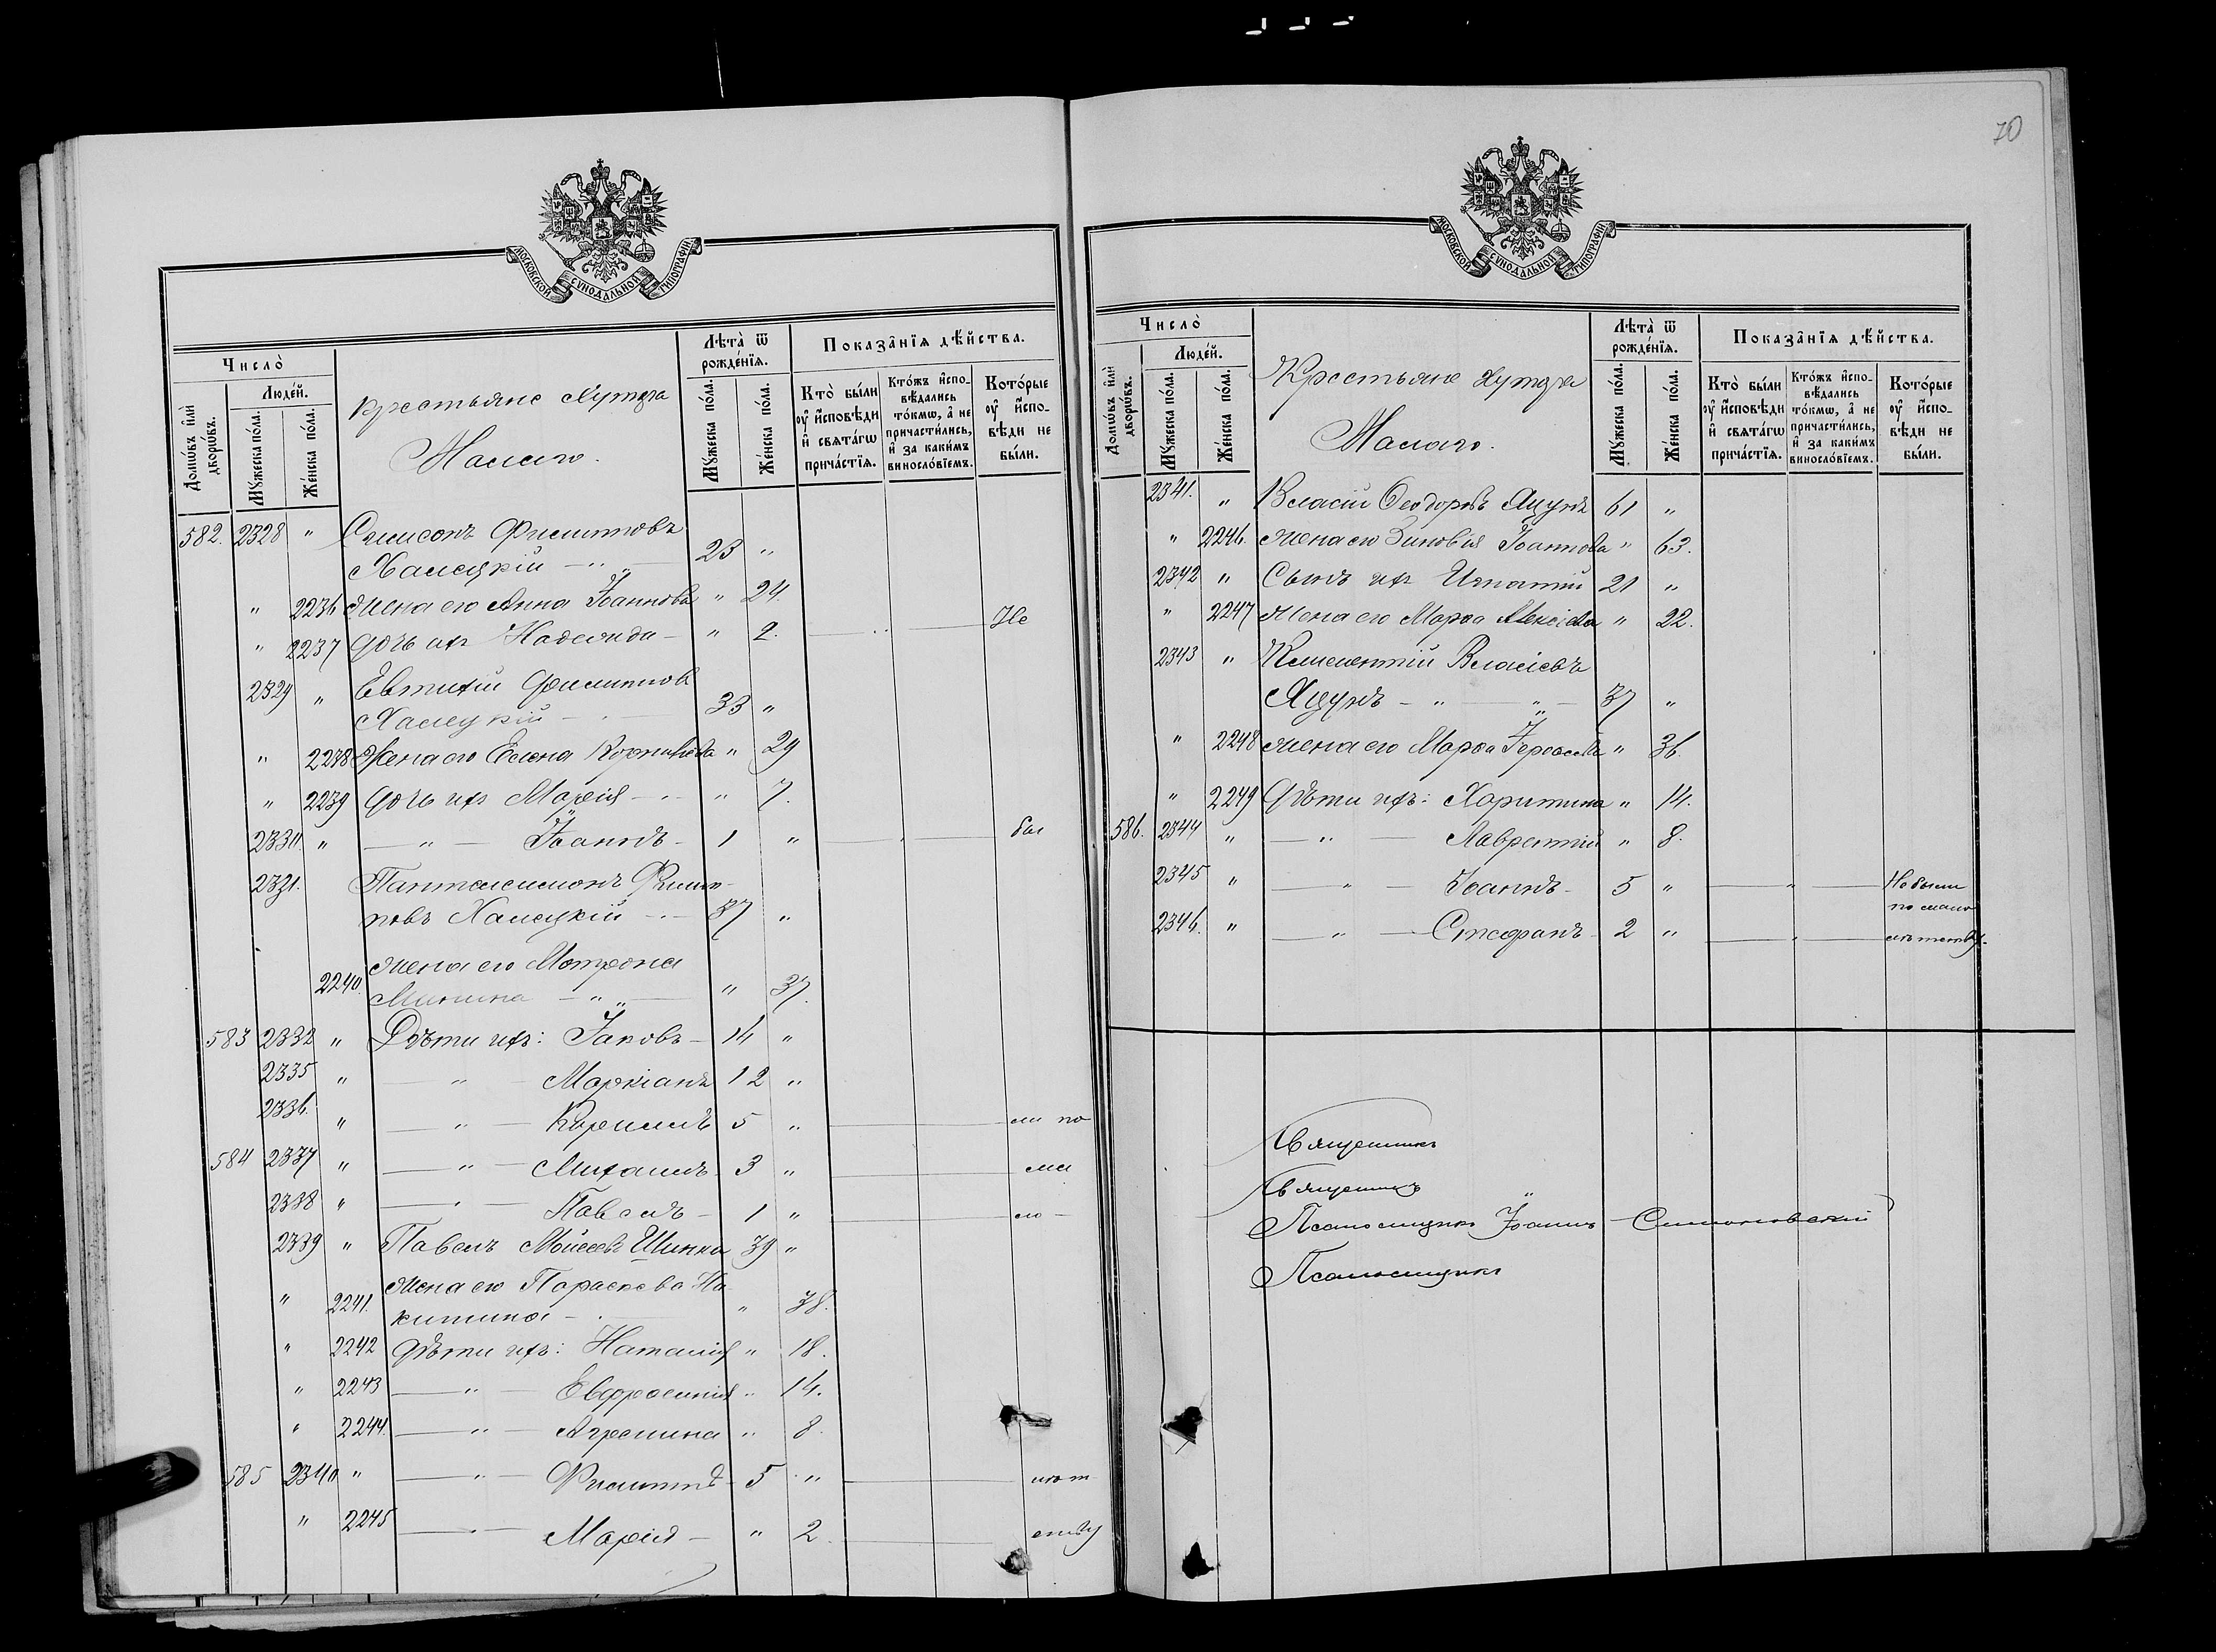 70
МОСКОВСКОЙ СѴНОДАЛЬНОЙ ТИПОГРАФІИ
Число̀
Люде́й.
Домѡ́въ и҆лѝ дворѡ́въ.
Мꙋ́жеска по́ла.
Же́нска по́ла.
Крестьяне Хутора
Малаго.
Лѣта̀ ѿ рожде́нїѧ.
Мꙋ́жеска по́ла.
Же́нска по́ла.
Показа̑нїѧ дѣ́йства.
Кто̀ бы́ли ᲂу҆ и҆сповѣди и҆ свѧта́гѡ прича́стїѧ.
Кто́жъ и҆спо-вѣдались то́кмѡ, а҆ не причасти́лись, и҆ за каки́мъ виносло́вїемъ.
Кото́рые ᲂу҆ и҆спо-вѣди не бы́ли.
582. 2328 " Самсонъ Филипповъ
Халецкій 23 "
" 2236 Жена его Анна Іоаннова " 24.
" 2237 Дочь ихъ Надежда " 2. Не
2329 " Евтихій Филиппов
Халецкій 33 "
" 2238 Жена его Елена " 29
" 2239 Дочь ихъ Марія " 7.
2330. " Іоаннъ 1 " бы
2331. Пантелеимонъ Филип-
повъ Халецкій 37 "
2240. Жена его Матрона
Минина " 37.
583 2332 " Дѣти ихъ: Іаковъ 14 "
2335 " Маркіанъ 12 "
2336. " Кириллъ 5 " ли по
584 2337 " Михаилъ 3 " ма
2338 " Павелъ 1 " ло-
2339 " Павелъ Моисеевъ Шинка 39 "
" 2241. Жена его Параскева Ни-
китина " 38.
" 2242 Дѣти ихъ: Наталія " 18.
" 2243 Евфросинія " 14.
" 2244. Агрепина " 8.
585 2340 " Филиппъ 5 " лѣт
" 2245 Марія " 2. ству
МОСКОВСКОЙ СѴНОДАЛЬНОЙ ТИПОГРАФІИ
Число̀
Люде́й.
Домѡ́въ и҆лѝ дворѡ́въ.
Мꙋ́жеска по́ла.
Же́нска по́ла.
Крестьяне Хутора
Малаго.
Лѣта̀ ѿ рожде́нїѧ.
Мꙋ́жеска по́ла.
Же́нска по́ла.
Показа̑нїѧ дѣ́йства.
Кто̀ бы́ли ᲂу҆ и҆сповѣди и҆ свѧта́гѡ прича́стїѧ.
Кто́жъ и҆спо-вѣдались то́кмѡ, а҆ не причасти́лись, и҆ за каки́мъ виносло́вїемъ.
Кото́рые ᲂу҆ и҆спо-вѣди не бы́ли.
2341. " Власій Ѳеодоровъ Яцунъ 61 "
" 2246. Жена его Зиновія Іоаннова " 63.
2342 " Сынъ ихъ Игнатій 21 "
" 2247 Жена его Марѳа Алексіева " 22.
2343 " Климентій Власіевъ
Яцунъ 37 "
" 2248 Жена его Марѳа " 36.
" 2249 Дѣти ихъ: Харитина " 14.
586. 2344 " Лаврентій " 8.
2345 " Іоаннъ 5 " Не были
по мало
2346. " Стефанъ 2 " лѣтству.
Священникъ
Священникъ
Псаломщикъ Іоаннъ Симоновскій
Псаломщикъ